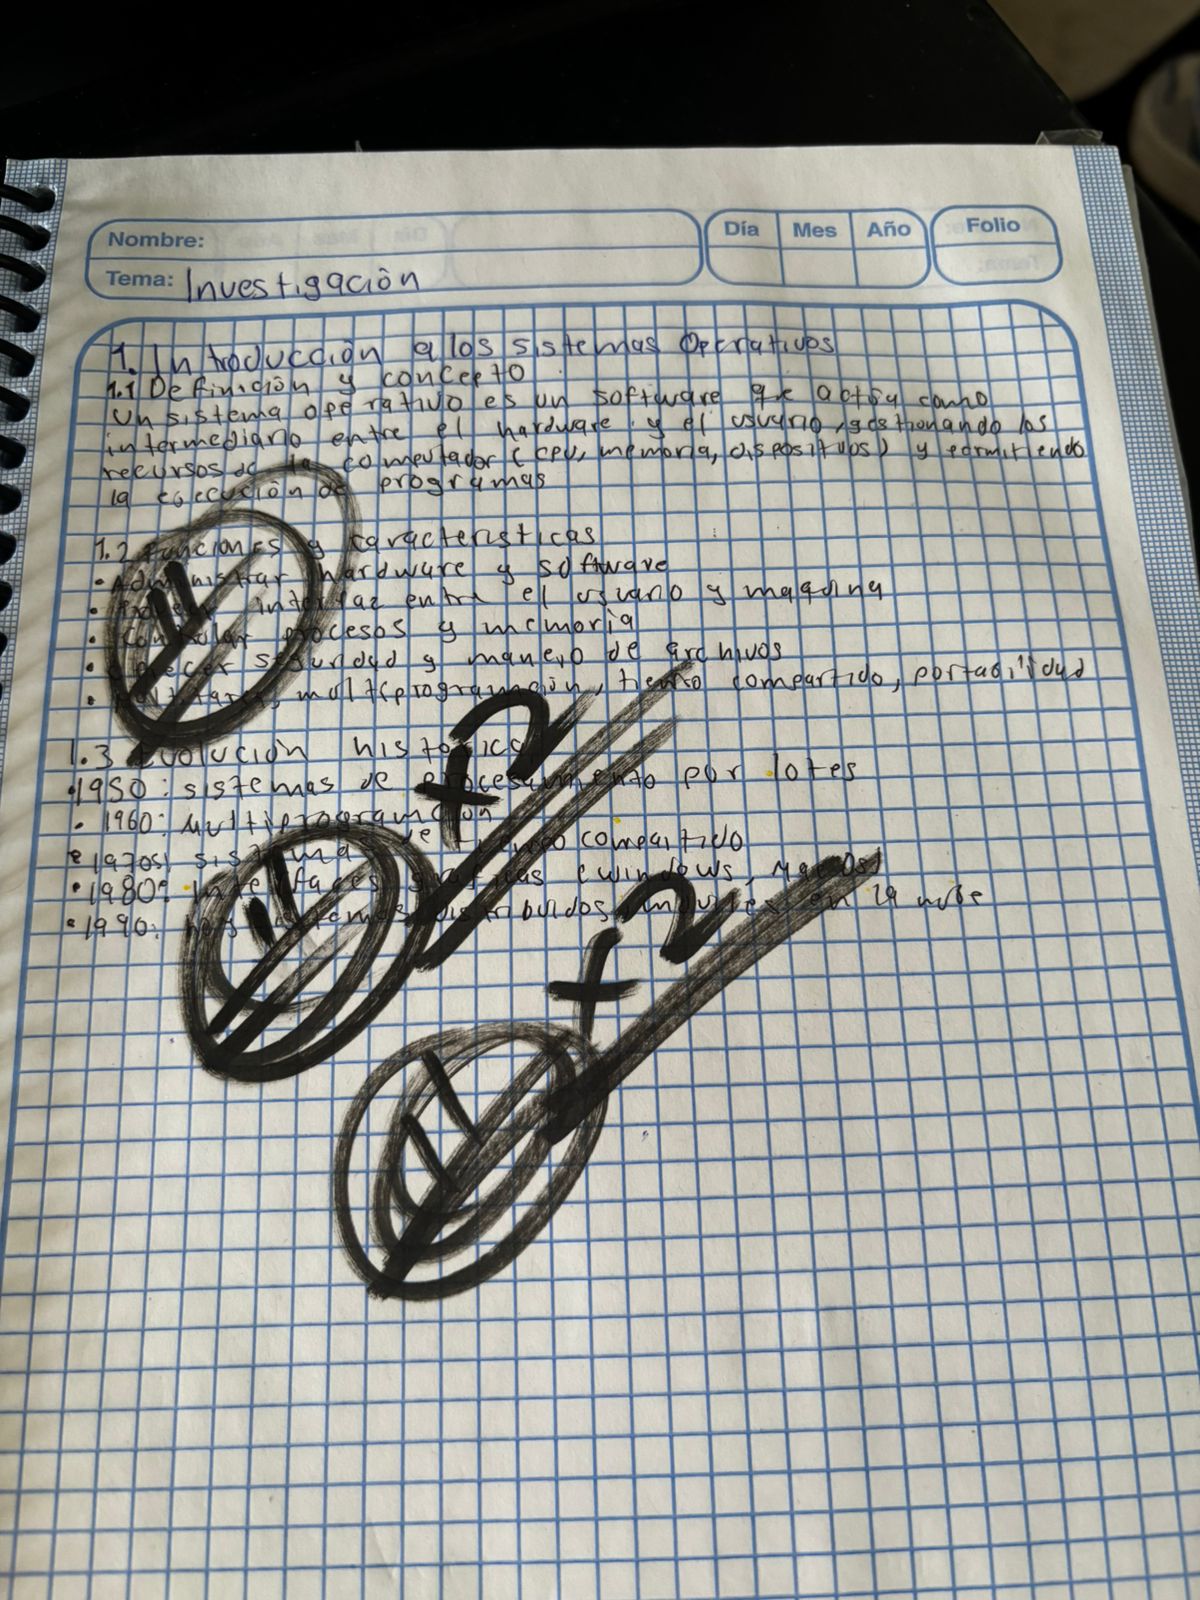 Nombre:
Día Mes Año Folio
Tema: Investigación
1. Introducción a los sistemas Operativos
1.1 Definición y concepto
Un sistema operativo es un software que actúa como
intermediario entre el hardware y el usuario, gestionando los
recursos de la computador (CPU, memoria, dispositivos) y permitiendo
la ejecución de programas
1.2 Funciones y características
• Administrar hardware y software
• interfaz entre el usuario y maquina
• Controlar procesos y memoria
• seguridad y manejo de archivos
• multiprogramación, tiempo compartido, portabilidad
1.3 Evolución historica
• 1950: sistemas de procesamiento por lotes
• 1960: Multiprogramación
• 1970s: sistema de tiempo compartido
• 1980: Interfaces graficas (windows, MacOs)
• 1990: distribuidos en la nube
+2
+2